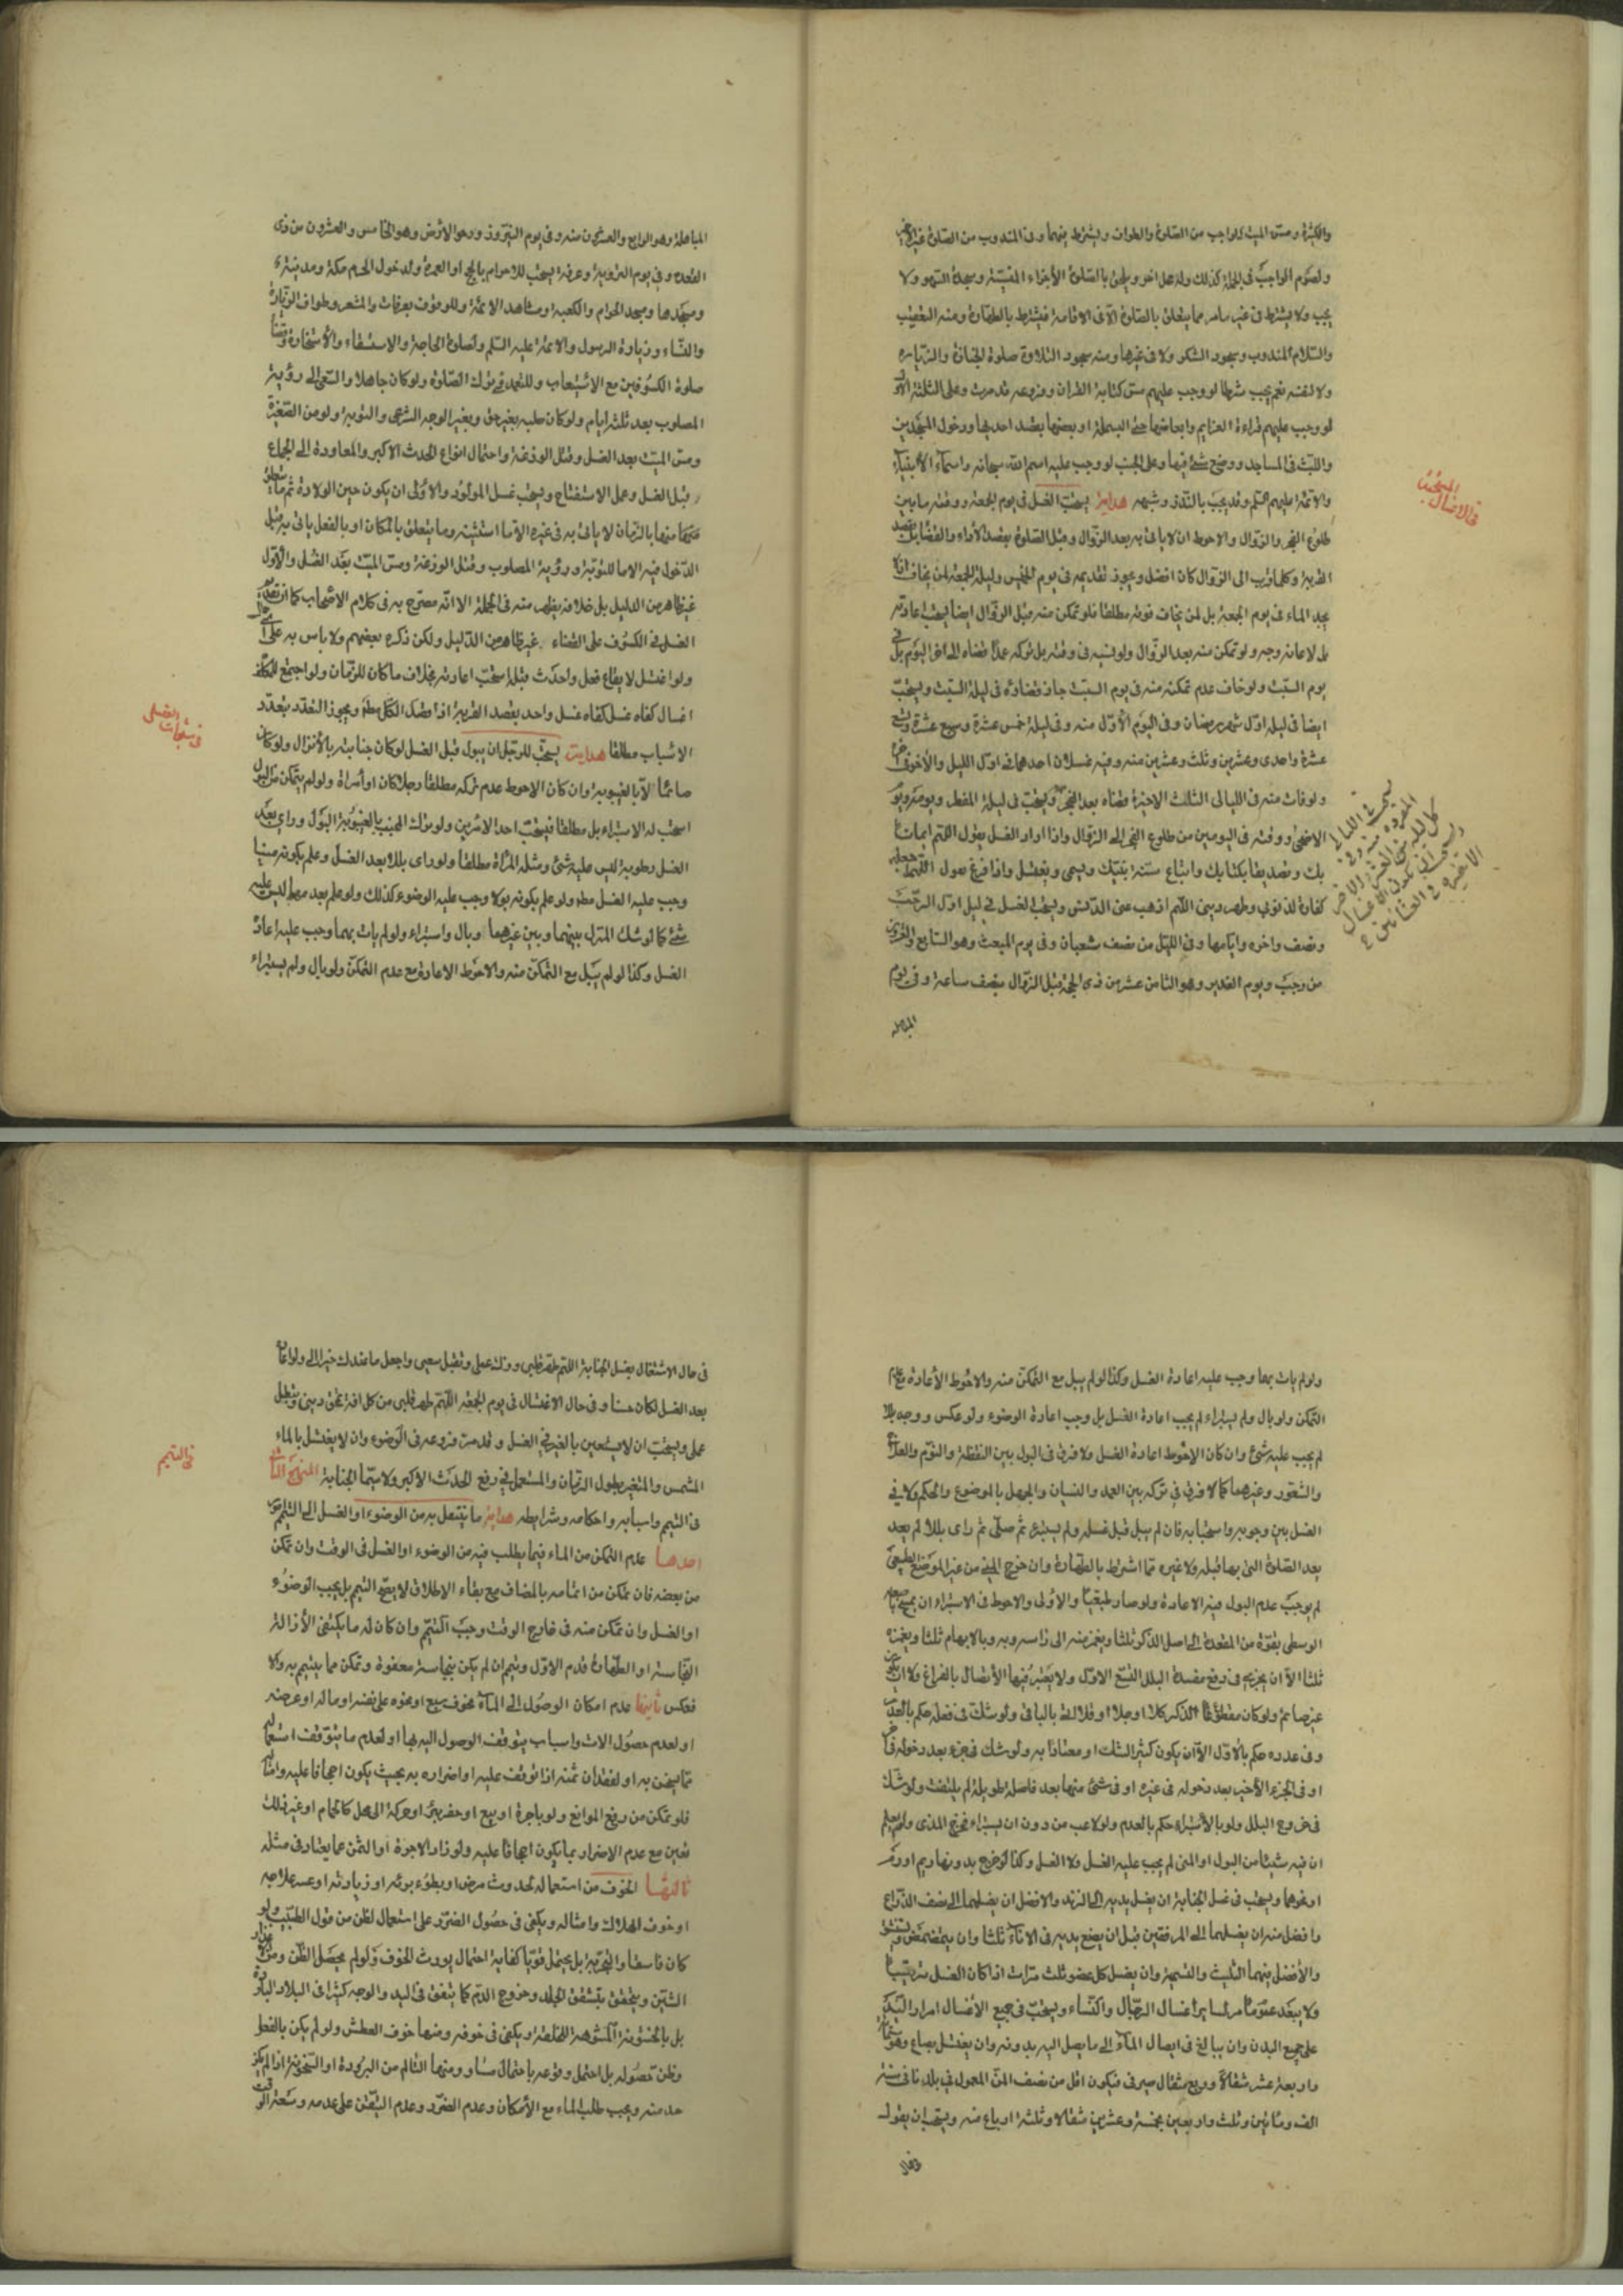 ومسّ الميت للواجب من الصلوة والطواف ويشترط فيهما وفى المندوب من الصلوة
ولصوم الواجب فى الجملة كذلك وله عمل اخر ويلحق بالصلوة الأجزاء المنسيّة وسجدة السهو ولا
يجب ولا يشترط فى غير ما مر مما يتعلق بالصلوة الّا فى الاقامة فيشترط بالطهارة ومنه التعقيب
والسّلام المندوب وسجود الشكر ولا فى غيرها ومنه سجود التلاوة صلوة الجنازة والزيارة
ولا لنفسه نعم يجب شرطا لو وجب عليهم مسّ كتابة القران وفروعه قد مرت وعلى الثلثة الأول
لو وجب عليهم قراءة العزايم وابعاضها حتى البسملة او بعضها بقصد احديها ودخول المسجدين
واللبث فى المساجد ووضع شئ فيها وعلى الجنب لو وجب عليه اسم الله سبحانه واسماء الأنبياء
والائمة عليهم السلم وقد يجب بالنذر وشبهه هداية يستحب الغسل فى يوم الجمعة ووقته ما بين
طلوع الفجر والزوال والاحوط ان لا ياتى به بعد الزوال وقبل الصلوة بقصد الأداء والقضاء بل بقصد
القربة وكلما قرب الى الزوال كان افضل ويجوز تقديمه فى يوم الخميس وليلة الجمعة لمن يخاف ان لا
يجد الماء فى يوم الجمعة بل لمن يخاف فوته مطلقا فلو تمكن منه قبل الزوال ايضا يستحب اعادته
بل لاعادته وجه ولو تمكن منه بعد الزوال ولو نسيه فى وقته بل تركه عمدا قضاه الى اخر اليوم بل فى
يوم السبت ولو خاف عدم تمكنه منه فى يوم السبت جاز قضاؤه فى ليلة السبت ويستحب
ايضا فى ليلة اوّل شهر رمضان وفى اليوم الأوّل منه وفى ليلة خمس عشرة وسبع عشرة وتسع
عشرة واحدى وعشرين وثلث وعشرين منه وفيه غسلان احدهما فى اوّل الليل والأخر فى اخره
ولو فات منه فى الليالى الثلث الاخيرة قضاه بعد الفجر ويستحب فى ليلة الفطر ويومه ويوم
الاضحى ووقته فى اليومين من طلوع الفجر الى الزوال واذا اراد الغسل يقول اللهم ايمانا
بك وتصديقا بكتابك واتباع سنة نبيّك ويسمى ويغتسل واذا فرغ يقول اللهم اجعله
كفارة لذنوبي وطهر دينى اللهم اذهب عنى الدّنس ويستحب الغسل فى ليل اوّل الرجب
ونصف واخره وايامها وفى الليل من نصف شعبان وفى يوم المبعث وهو السابع والعشرين
من رجب ويوم الغدير وهو الثامن عشر من ذى الحجة قبل الزوال بنصف ساعة وفى يوم
المباهلة
فى الاغسال المستحبة
المباهلة وهو الرابع والعشرون منه وفى يوم النيروز ودحو الارض وهو الخامس والعشرون من ذى
القعدة وفى يوم التروية وعرفة يستحب للاحرام بالحج او العمرة ولدخول الحرم مكة ومدينة
ومسجدها ومسجد الحرام والكعبة ومشاهد الائمة وللوقوف بعرفات والمشعر وطواف الزيارة
والنساء وزيارة الرسول والائمة عليه السّلم ولصلوة الحاجة والاستسقاء والأستخارة
صلوة الكسوفين مع الاستيعاب وللتعمد فى ترك الصلوة ولو كان جاهلا والسّعى الى رؤية
المصلوب بعد ثلثة ايام ولو كان صلبه بغير حق وبغير الوجه الشرعى والتوبة ولو من الصّغيرة
ومسّ الميّت بعد الغسل وقتل الوزغة واحتمال انواع الحدث الاكبر والمعاودة الى الجماع
قبل الغسل وعمل الاستفتاح ويستحب غسل المولود والأولى ان يكون حين الولادة ثم
منها بالزمان لا ياتى به فى غيره الّا ما استثنيته وما يتعلق بالمكان او بالفعل ياتى به قبل
الدّخول فيه الا ما للتوبة ورؤية المصلوب وقتل الوزغة ومسّ الميّت بعد الغسل والأوّل
غير ظاهر من الدليل بل خلافه يظهر منه فى الجملة الا انّه مصرح به فى كلام الاصحاب كما ان
الغسل فى الكسوف على القضاء غير ظاهر من الدّليل ولكن ذكره بعضهم ولا باس به
ولو اغتسل لايقاع فعل واحدث قبله استحب اعادته بخلاف ما كان للزمان ولو اجتمع للمكلف
اغسال كفاه غسل كفاه غسل واحد بقصد القربة اذا قصد الكلّ معا ويجوز التعدد بتعدّد
الاسباب مطلقا هداية يستحب للرجل ان يبول قبل الغسل لو كان جنابته بالأنزال ولو كان
صائما الّا بالغيبوبة وان كان الاحوط عدم تركه مطلقا رجلا كان او أمراة ولو لم يتمكن من البول
استحب له الاستبراء بل مطلقا فيستحب احد الامرين ولو ترك المجنب بالغيبوبة البول وراى بعد
الغسل رطوبة ليس عليه شئ ومثله المراة مطلقا ولو راى بللا بعد الغسل وعلم بكونه منيا
وجب عليه الغسل مطلقا ولو علم بكونه بولا وجب عليه الوضوء كذلك ولو علم بعدمهما ليس عليه
شئ كما لو شك المنزل بينهما وبين غيرهما وبال واستبراء ولو لم يات بهما وجب عليه اعادة
الغسل وكذا لو لم يبل مع التمكن منه والاحوط الاعادة مع عدم التمكن ولو بال ولم يستبراء
فى مستحبات الغسل
ولو لم يات بهما وجب عليه اعادة الغسل وكذا لو لم يبل مع التمكن منه والاحوط الأعادة مع عدم
التمكن ولو بال ولم يستبراء لم يجب اعادة الغسل بل وجب اعادة الوضوء ولو عكس ووجد بللا
لم يجب عليه شئ وان كان الاحوط اعادة الغسل ولا فرق فى البول بين اليقظة والنّوم والعلم
والشعور وغيرهما كما لا فرق فى تركه بين العمد والنسيان والجهل بالموضوع والحكم ولا فى
الغسل بين وجوبه واستحبابه فان لم يبل قبل غسله ولم يستبرئ ثم صلّى ثم راى بللا لم يعد
بعد الصلوة التى بها قبله ولا غيره ممّا اشترط بالطهارة وان خرج المنى من غير الموضع الطبيعى
لم يوجب عدم البول فيه الاعادة ولو صار طبيعيّا والأولى والاحوط فى الاستبراء ان يمسح باصبعه
الوسطى بقوّة من المقعدة الى اصل الذكر ثلثا ويغمز منه الى راسه وبه وبالابهام ثلثا ويغمزه
ثلثا الّا ان يجزيه فى رفع مفسدة البلل التسع الاوّل ولا يعتبر فيها الأتصال بالفراغ ولا ان يكون
ولو كان مقطوع الذّكر كلا او جلا او قلا اتى بالباقى ولو شكّ فى فعله حكم بالعدم
وفى عدده حكم بالأوّل الّا ان يكون كثير الشك او معتادا به ولو شك فى جزء بعد دخوله
او فى الجزء الأخير بعد دخوله فى غيره او فى شئ منها بعد فاصلة طويلة لم يلتفت ولو شكّ
فى خروج البلل ولو بالأستبراء حكم بالعدم ولو لاعب من دون ان يستبراء فخرج المذى ولم يعلم
ان فيه شيئا من البول او المنى لم يجب عليه الغسل ولا الغسل وكذا لو خرج بدونهما ريم او دم
او نحوهما ويستحب فى غسل الجنابة ان يغسل يديه الى الزند والافضل ان يغسلهما الى نصف الذّراع
وافضل منه ان يغسلهما الى المرفقين قبل ان يضع يديه فى الأناء ثلثا وان يتمضمض ويستنشق
والأفضل فيهما التثليث والتسمية وان يغسل كل عضو ثلث مرات اذا كان الغسل ترتيبيا
ولا يبعد عمومها لساير اغسال الرّجال والنّساء ويستحب فى جميع الأغسال امرار اليد
على جميع البدن وان يبالغ فى ايصال الماء الى ما يصل اليه بدونه وان يغتسل بصاع وهو ستمائة
واربعة عشر مثقالا وربع مثقال صيرفى فيكون اقل من نصف المنّ المعمول فى بلدنا فى سنة
الف ومأتين وثلث واربعين بخمسة وعشرين مثقالا وثلثة ارباع منه ويستحب ان يقول
فى حال
فى حال الاشتغال بغسل الجنابة اللهم طهر قلبى وزك عملى وتقبل سعيى واجعل ما عندك خيرا لى ولو دعا
بعد الغسل لكان حسنا وفى حال الاغتسال فى يوم الجمعة اللهم طهر قلبى من كل افة تمحق دينى وتبطل
عملى ويستحب ان لا يستعين بالغير فى الغسل وقد مرت فروعه فى الوضوء وان لا يغتسل بالماء
المشمس والمتغير بطول الزمان والمستعمل فى رفع الحدث الاكبر ولا سيّما الجنابة المنهج الثالث
فى التيمم واسبابه واحكامه وشرايطه هداية ما ينتقل به من الوضوء او الغسل الى التيمم امور
احدها عدم التمكن من الماء فيما يطلب فيه من الوضوء او الغسل فى الوقت وان تمكن
من بعضه فان تمكن من اتمامه بالمضاف مع بقاء الاطلاق لا يصحّ التيمم بل يجب الوضوء
او الغسل وان تمكن منه فى خارج الوقت وجب التيمّم وان كان له ما يكتفى لأزالة
النجاسة او الطّهارة قدم الاوّل وتيمم ان لم يكن بنجاسته معفوة وتمكن مما يتيمم به والا
فعكس ثانيها عدم امكان الوصول الى الماء لخوف سبع او نحوه على نفسه او ماله او عرضه
او لعدم حصول الات واسباب يتوقف الوصول اليه بها او لعدم ما يتوقف استعماله
او لفقدان ثمنه اذا توقف عليه او اضراره به بحيث يكون اجحافا عليه
فلو تمكن من رفع الموانع ولو باجرة او بيع او حفر بئر او حركة الى محل كالحمام او غير ذلك
تعين مع عدم الاضرار بما يكون اجحافا عليه ولو زاد الاجرة او الثمن عما يعتاد فى مثله
ثالثها الخوف من استعماله لحدوث مرض او بطوء برئه او زيادته او عسر علاجه
او خوف الهلاك وامثاله ويكفى فى حصول الضرر على استعمال الظن من قول الطبيب ولو
كان فاسقا والتجربة بل يحتمل قويّا كفاية احتمال يورث الخوف ولو لم يحصل الظن ومنه
الشين ويتحقق بتشقق الجلد وخروج الدّم كما يتفق فى اليد والوجه كثيرا فى البلاد الباردة
بل بالخشونة المشوهة للخلقة ويكفى فى خوفه ومنها خوف العطش ولو لم يكن بالفعل
وظن حصوله بل احتمل وقوعه باحتمال مساو ومنها التالم من البرودة او السّخونة اذا لم يكن
حد منه ويجب طلب الماء مع الأمكان وعدم الضرر وعدم التيقّن على عدمه وسعة الوقت
فى التيمم